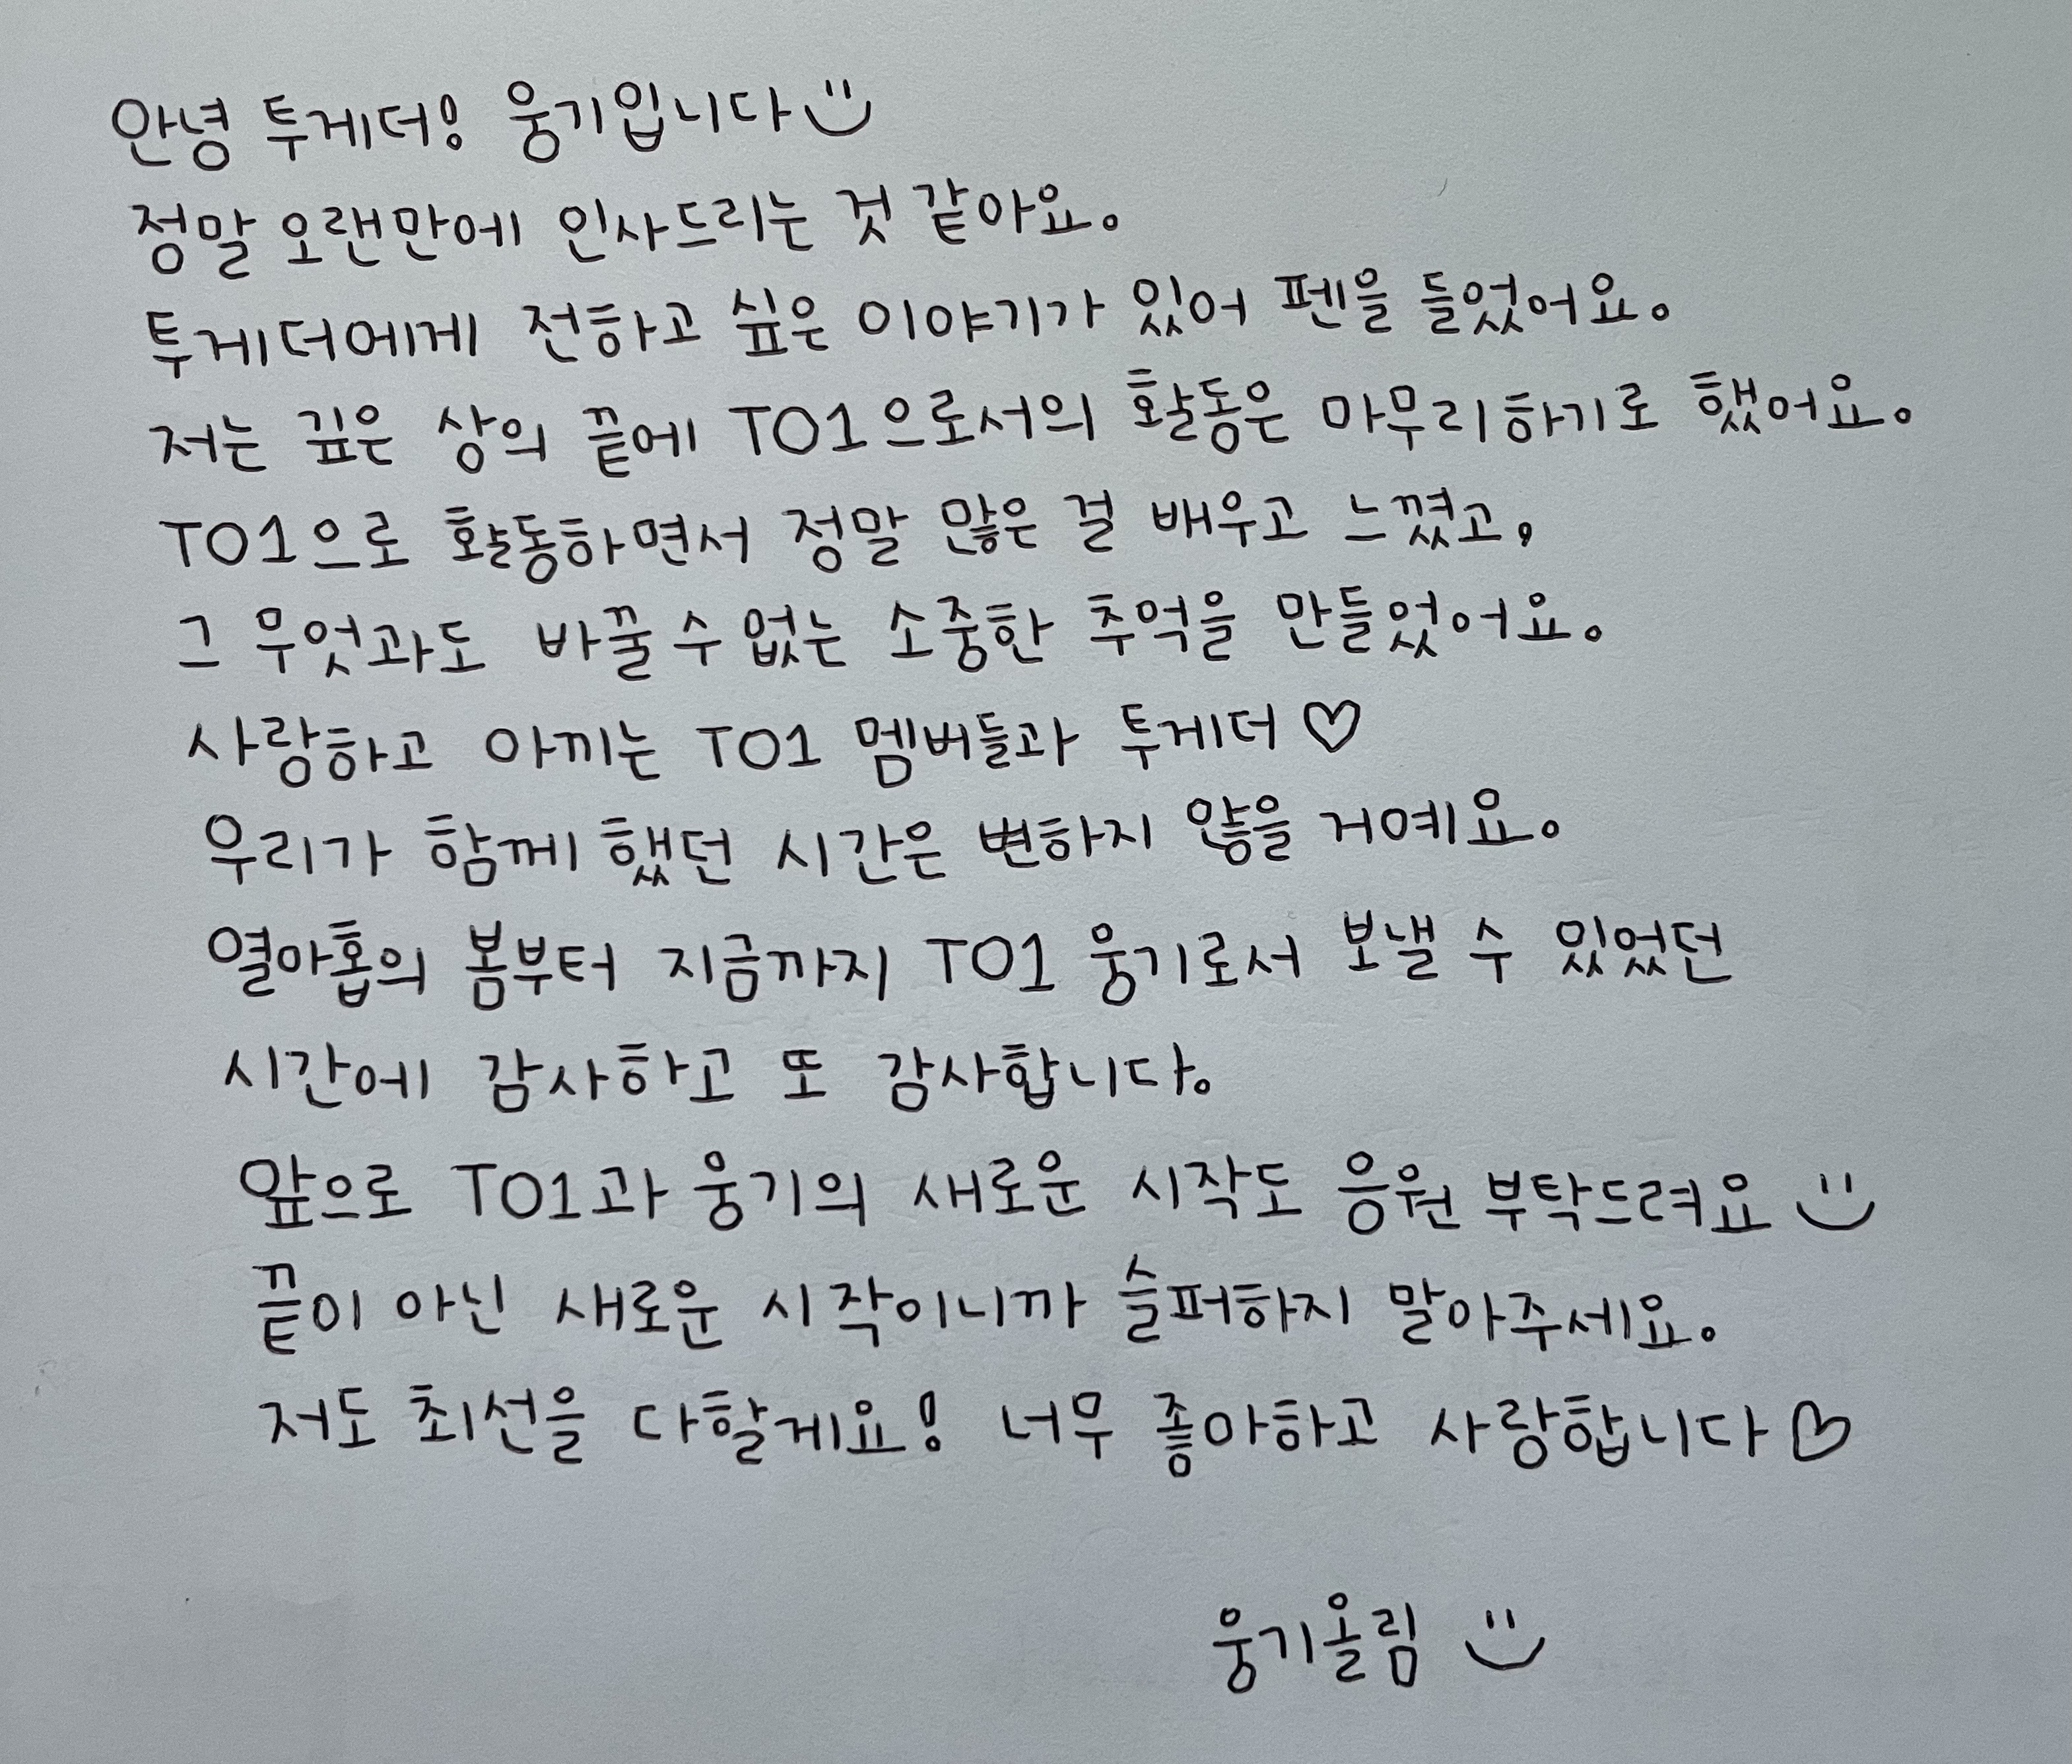 안녕 투게더! 웅기입니다
정말 오랜만에 인사드리는 것 같아요.
투게더에게 전하고 싶은 이야기가 있어 펜을 들었어요.
저는 깊은 상의 끝에 TO1으로서의 활동은 마무리하기로 했어요.
TO1으로 활동하면서 정말 많은 걸 배우고 느꼈고,
그 무엇과도 바꿀 수 없는 소중한 추억을 만들었어요.
사랑하고 아끼는 TO1 멤버들과 투게더♡
우리가 함께 했던 시간은 변하지 않을 거예요.
열아홉의 봄부터 지금까지 TO1 웅기로서 보낼 수 있었던
시간에 감사하고 또 감사합니다.
앞으로 TO1과 웅기의 새로운 시작도 응원 부탁드려요
끝이 아닌 새로운 시작이니까 슬퍼하지 말아주세요.
저도 최선을 다할게요! 너무 좋아하고 사랑합니다♡
웅기올림